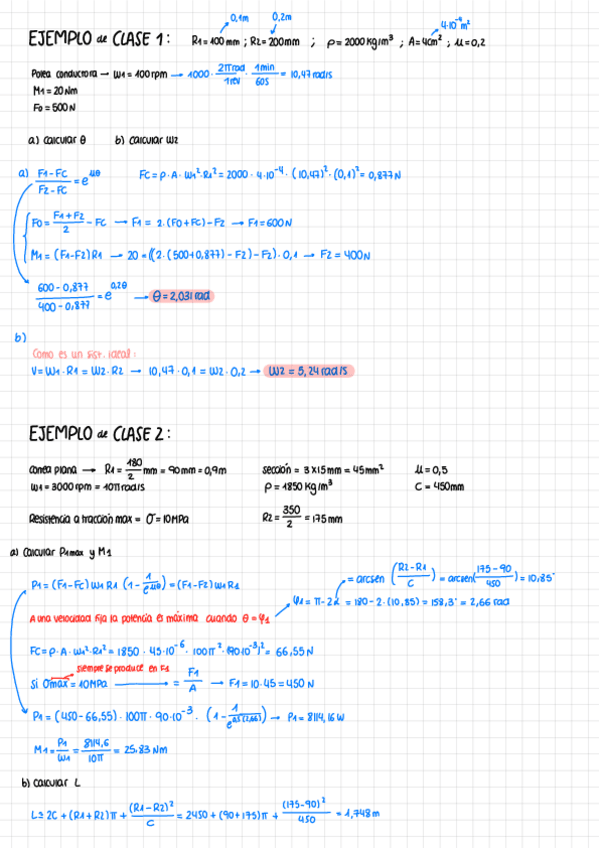 0,1m 0,2m 4·10⁻⁴m²
EJEMPLO de CLASE 1: R1=100mm ; R2=200mm ; ρ=2000kg/m³ ; A=4cm² ; μ=0,2
Polea conductora → W1=100rpm → 1000 · 2πrad/1rev · 1min/60s = 10,47rad/s
M1=20Nm
F0=500N
a) Calcular θ b) Calcular W2
a) F1-FC/F2-FC = e^μθ FC=ρ·A·W1²·R1²=2000·4·10⁻⁴·(10,47)²·(0,1)²=0,877N
F0=F1+F2/2 - FC → F1= 2·(F0+FC)-F2 → F1=600N
M1=(F1-F2)R1 → 20=((2·(500+0,877)-F2)-F2)·0,1 → F2=400N
600-0,877/400-0,877 = e^0,2θ → θ=2,031rad
b)
Como es un sist. ideal:
V=W1·R1=W2·R2 → 10,47·0,1=W2·0,2 → W2=5,24rad/s
EJEMPLO de CLASE 2:
Correa plana → R1=180/2 mm=90mm=0,9m sección=3x15mm=45mm² μ=0,5
W1=3000rpm=10πrad/s ρ=1850kg/m³ C=450mm
Resistencia a tracción max= σ=10MPa R2=350/2=175mm
a) Calcular P1max y M1
P1=(F1-FC)W1R1 (1-1/e^μθ)=(F1-F2)W1R1 =arcsen(R2-R1/C)=arcsen(175-90/450)=10,85°
A una velocidad fija la potencia es máxima cuando θ=φ1 φ1=π-2α=180-2·(10,85)=158,3°=2,66rad
FC=ρ·A·W1²·R1²=1850·45·10⁻⁶·100π²·(90·10⁻³)²=66,55N
siempre se produce en F1
Si σmax=10MPa → =F1/A → F1=10·45=450N
P1=(450-66,55)·100π·90·10⁻³·(1-1/e^0,5(2,66)) → P1=8114,16W
M1=P1/W1=8114,6/10π=25,83Nm
b) Calcular L
L≃2C+(R1+R2)π+(R1-R2)²/C=2450+(90+175)π+(175-90)²/450=1,748m